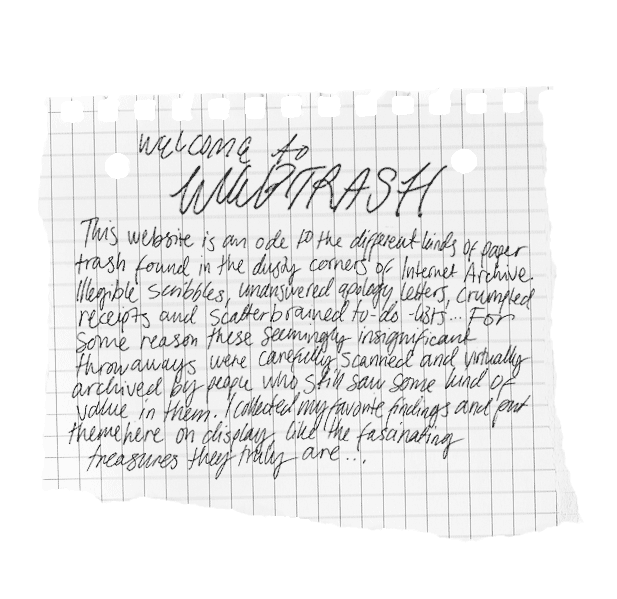 welcome to
WEBTRASH
This website is an ode to the different kinds of paper
trash found in the dusty corners of Internet Archive.
Illegible scribbles, unanswered apology letters, crumpled
receipts and scatterbrained to-do-lists... For
some reason these seemingly insignificant
throwaways were carefully scanned and virtually
archived by people who still saw some kind of
value in them. I collected my favorite findings and put
them here on display, like the fascinating
treasures they truly are...